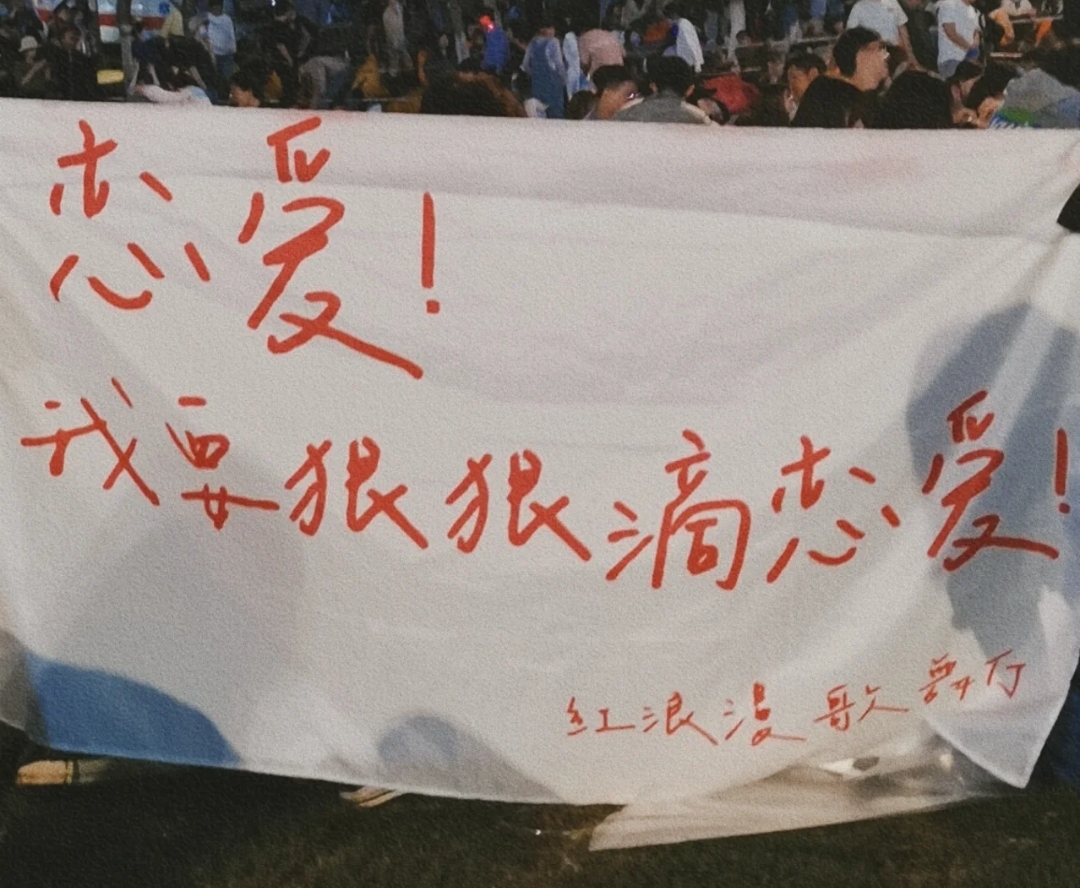 恋爱！
我要狠狠滴恋爱！
红浪漫歌舞厅